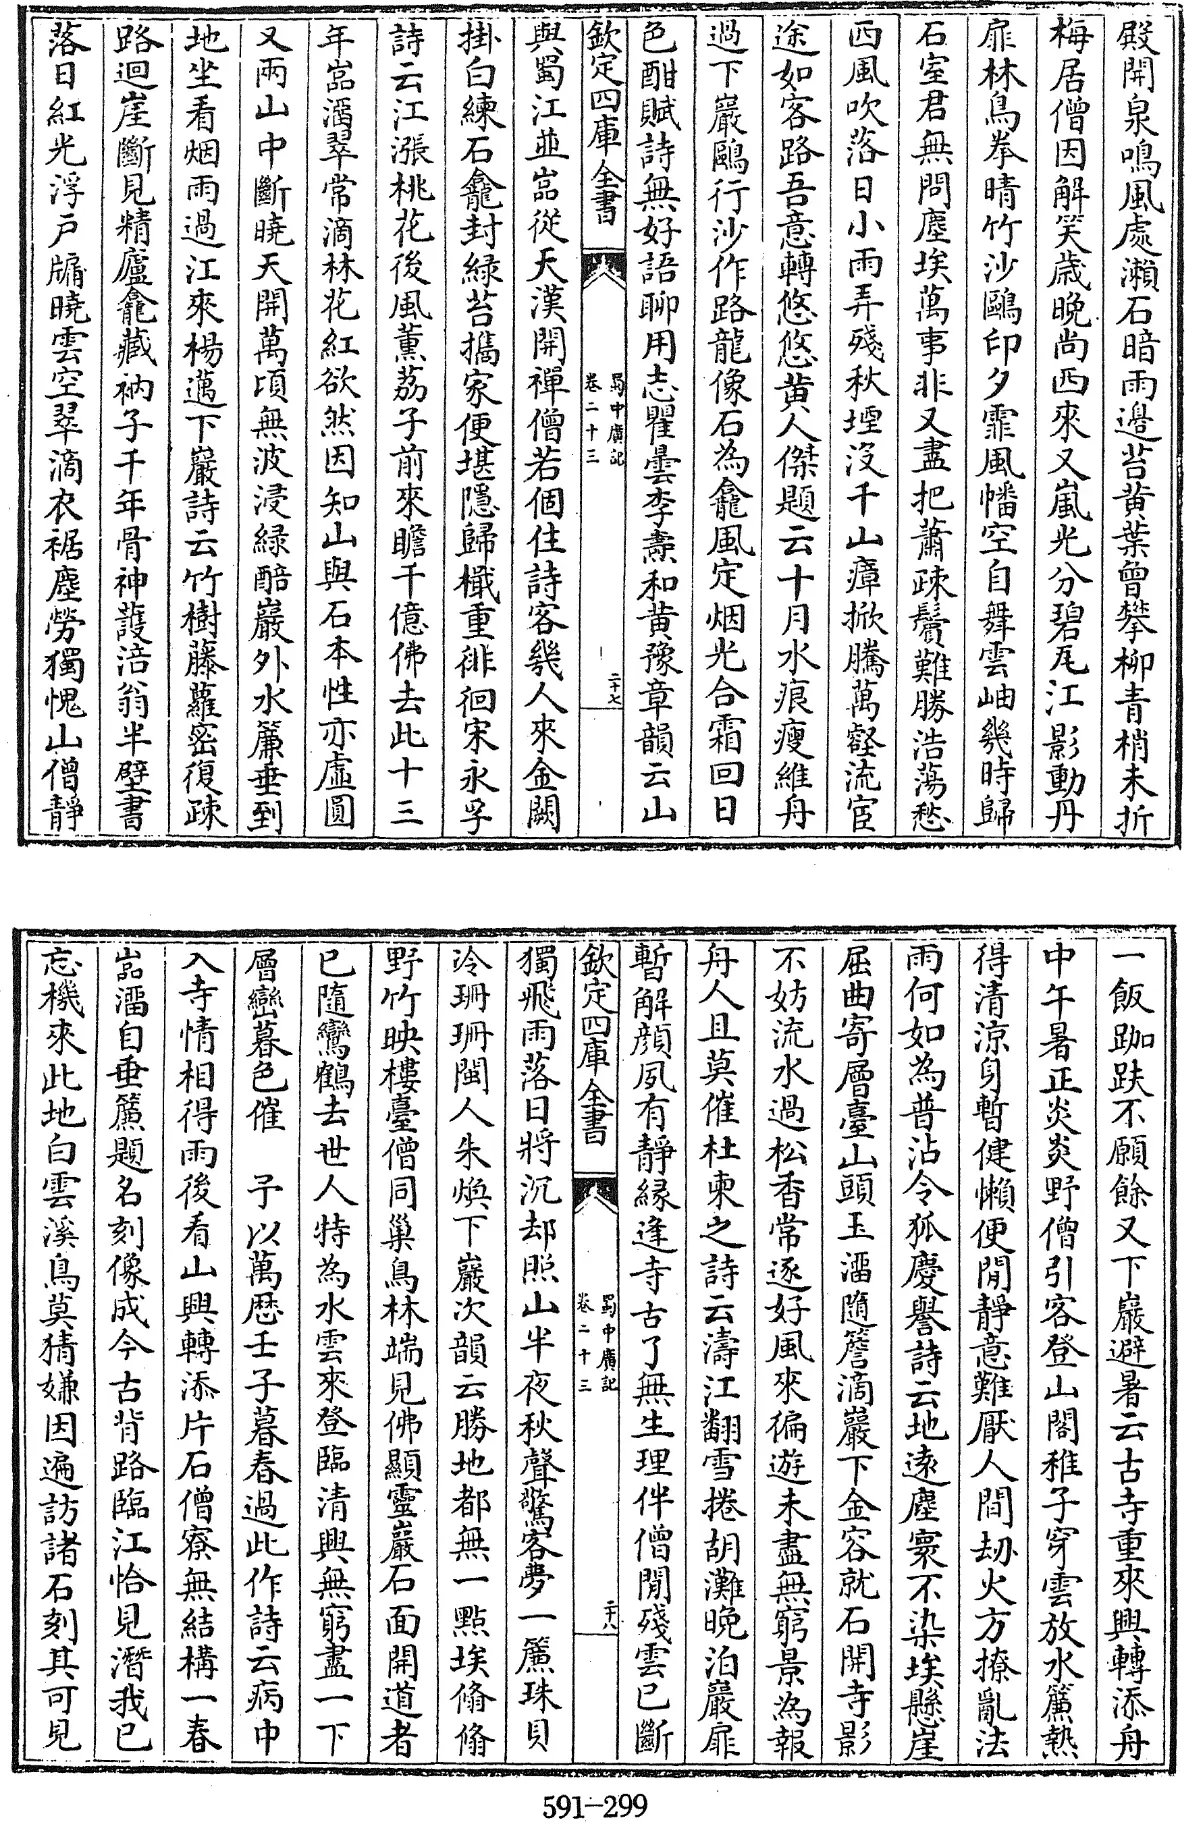 殿開泉鳴風處瀨石暗雨邊苔黄葉曾攀柳青梢未折
梅居僧因解笑歳晚尚西來又嵐光分碧瓦江影動丹
扉林鳥拳晴竹沙鷗印夕霏風幡空自舞雲岫幾時歸
石室君無問塵埃萬事非又盡把蕭疎鬢難勝浩蕩愁
西風吹落日小雨弄殘秋堙沒千山瘴掀騰萬壑流宦
途如客路吾意轉悠悠黄人傑題云十月水痕瘦維舟
過下巖鷗行沙作路龍像石為龕風定烟光合霜回日
色酣賦詩無好語聊用志瞿曇李燾和黄豫章韻云山
欽定四庫全書
蜀中廣記
卷二十三
二十七
與蜀江並嵓從天漢開禪僧若個住詩客幾人來金闕
掛白練石龕封緑苔攜家便堪隱歸檝重徘徊宋永孚
詩云江漲桃花後風薫荔子前來瞻千億佛去此十三
年嵓溜翠常滴林花紅欲然因知山與石本性亦虛圓
又兩山中斷曉天開萬頃無波浸緑醅巖外水簾垂到
地坐看烟雨過江來楊邁下巖詩云竹樹藤蘿密復疎
路迴崖斷見精廬龕藏衲子千年骨神護涪翁半壁書
落日紅光浮戶牖曉雲空翠滴衣裾塵勞獨愧山僧靜
一飯跏趺不願餘又下巖避暑云古寺重來興轉添舟
中午暑正炎炎野僧引客登山閣稚子穿雲放水簾熱
得清涼身暫健懶便閒靜意難厭人間劫火方撩亂法
雨何如為普沾令狐慶譽詩云地逺塵寰不染埃懸崖
屈曲寄層臺山頭玉溜隨簷滴巖下金容就石開寺影
不妨流水過松香常逐好風來徧遊未盡無窮景為報
舟人且莫催杜柬之詩云濤江翻雪捲胡灘晚泊巖扉
暫解顔夙有靜縁逢寺古了無生理伴僧閒殘雲已斷
欽定四庫全書
蜀中廣記
卷二十三
二十八
獨飛雨落日將沉却照山半夜秋聲驚客夢一簾珠貝
泠珊珊閩人朱煥下巖次韻云勝地都無一點埃翛翛
野竹映樓臺僧同巢鳥林端見佛顯靈巖石面開道者
已隨鸞鶴去世人特為水雲來登臨清興無窮盡一下
層巒暮色催　予以萬厯壬子暮春過此作詩云病中
入寺情相得雨後看山興轉添片石僧寮無結構一春
嵓溜自垂簾題名刻像成今古背路臨江恰見潛我已
忘機來此地白雲溪鳥莫猜嫌因遍訪諸石刻其可見
591-299